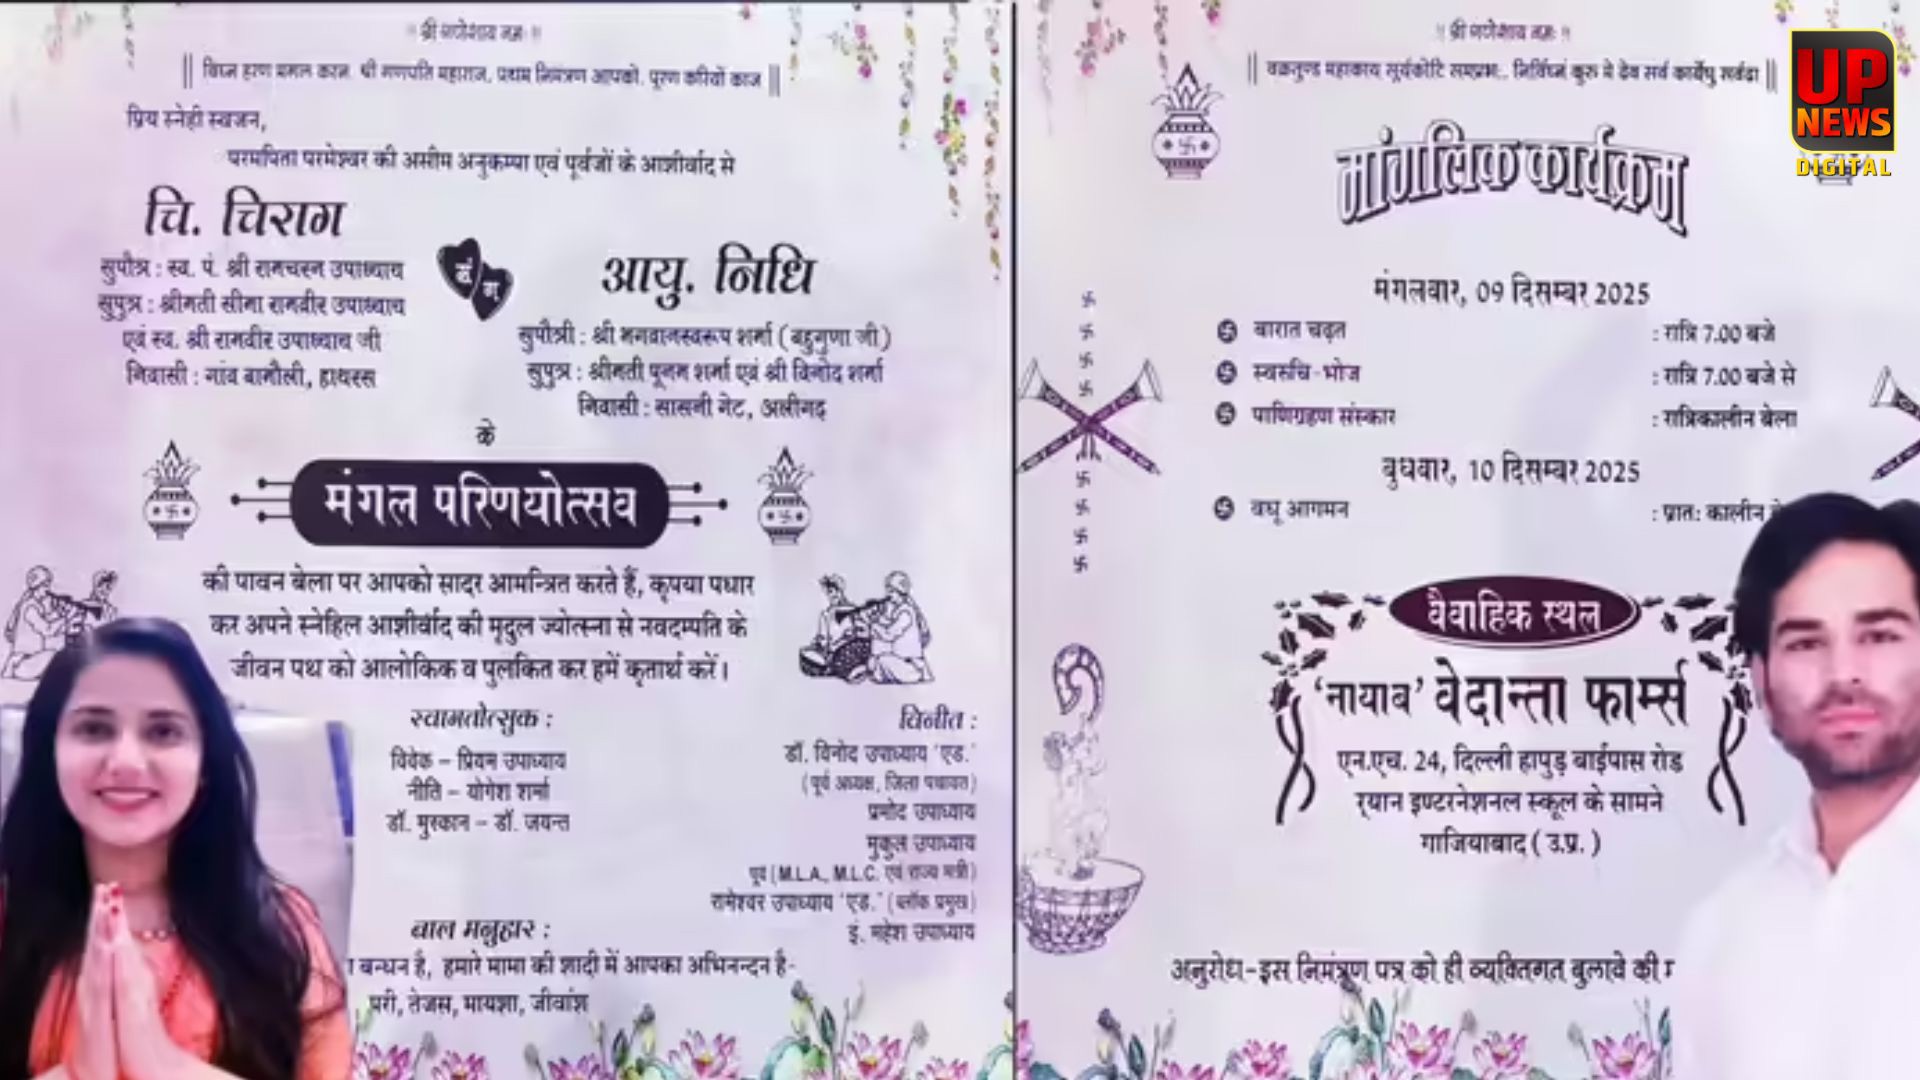 ॥ श्री गणेशाय नमः ॥
|| विघ्न हरण मंगल करन, श्री गणपति महाराज, प्रथम निमंत्रण आपको, पूरण करियों काज ||
प्रिय स्नेही स्वजन,
परमपिता परमेश्वर की असीम अनुकम्पा एवं पूर्वजों के आशीर्वाद से
चि. चिराग
सुपौत्र : स्व. पं. श्री रामचरन उपाध्याय
सुपुत्र : श्रीमती सीमा रामवीर उपाध्याय
एवं स्व. श्री रामवीर उपाध्याय जी
निवासी : गांव बामौली, हाथरस
संग
आयु. निधि
सुपौत्री : श्री भगवानस्वरूप शर्मा ( बहुगुणा जी )
सुपुत्र : श्रीमती पूनम शर्मा एवं श्री विनोद शर्मा
निवासी : सासनी गेट, अलीगढ़
के
मंगल परिणयोत्सव
की पावन बेला पर आपको सादर आमन्त्रित करते हैं, कृपया पधार
कर अपने स्नेहिल आशीर्वाद की मृदुल ज्योत्स्ना से नवदम्पति के
जीवन पथ को आलोकिक व पुलकित कर हमें कृतार्थ करें।
स्वागतोत्सुक :
विवेक – प्रियन उपाध्याय
नीति – योगेश शर्मा
डॉ. मुस्कान – डॉ. जयन्त
विनीत :
डॉ. विनोद उपाध्याय 'एड.'
(पूर्व अध्यक्ष, जिला पंचायत)
प्रमोद उपाध्याय
मुकुल उपाध्याय
पूर्व (M.L.A., M.L.C. एवं राज्य मंत्री)
रामेश्वर उपाध्याय 'एड.' (ब्लॉक प्रमुख)
इं. महेश उपाध्याय
बाल मनुहार :
बन्धन है, हमारे मामा की शादी में आपका अभिनन्दन है-
परी, तेजस, मायशा, जीवांश
॥ श्री गणेशाय नमः ॥
|| वक्रतुण्ड महाकाय सूर्यकोटि समप्रभः, निर्विघ्नं कुरु मे देव सर्व कार्येषु सर्वदा ||
मांगलिक कार्यक्रम
मंगलवार, 09 दिसम्बर 2025
बारात चढ़त : रात्रि 7.00 बजे
स्वरुचि-भोज : रात्रि 7.00 बजे से
पाणिग्रहण संस्कार : रात्रिकालीन बेला
बुधवार, 10 दिसम्बर 2025
वधू आगमन : प्रात: कालीन
वैवाहिक स्थल
'नायाब' वेदान्ता फार्म्स
एन.एच. 24, दिल्ली हापुड़ बाईपास रोड
रयान इण्टरनेशनल स्कूल के सामने
गाजियाबाद ( उ.प्र. )
अनुरोध-इस निमंत्रण पत्र को ही व्यक्तिगत बुलावे की
UP
NEWS
DIGITAL